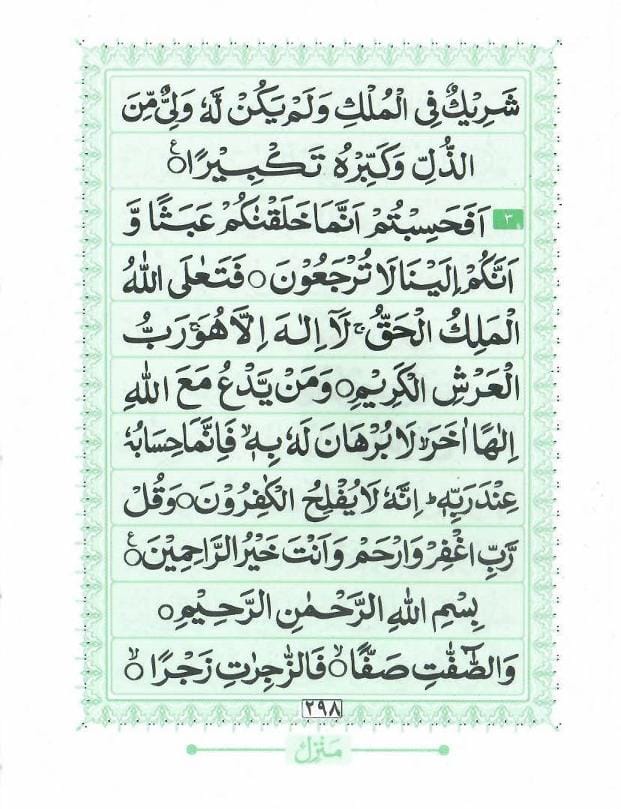 شَرِيْكٌ فِى الْمُلْكِ وَلَمْ يَكُنْ لَّهٗ وَلِىٌّ مِّنَ
الذُّلِّ وَكَبِّرْهُ تَكْبِيْرًا ○ ع
٣ اَفَحَسِبْتُمْ اَنَّمَا خَلَقْنٰكُمْ عَبَثًا وَّ
اَنَّكُمْ اِلَيْنَا لَا تُرْجَعُوْنَ ○ فَتَعٰلَى اللّٰهُ
الْمَلِكُ الْحَقُّ ۚ لَآ اِلٰهَ اِلَّا هُوَ ۚ رَبُّ
الْعَرْشِ الْكَرِيْمِ ○ وَمَنْ يَّدْعُ مَعَ اللّٰهِ
اِلٰهًا اٰخَرَ ۙ لَا بُرْهَانَ لَهٗ بِهٖ ۙ فَاِنَّمَا حِسَابُهٗ
عِنْدَ رَبِّهٖ ؕ اِنَّهٗ لَا يُفْلِحُ الْكٰفِرُوْنَ ○ وَقُلْ
رَّبِّ اغْفِرْ وَارْحَمْ وَاَنْتَ خَيْرُ الرَّاحِمِيْنَ ○ ع
بِسْمِ اللّٰهِ الرَّحْمٰنِ الرَّحِيْمِ ○
وَالصّٰٓفّٰتِ صَفًّا ○ ۙ فَالزّٰجِرٰتِ زَجْرًا ○ ۙ
٢٩٨
مَنْزِلْ